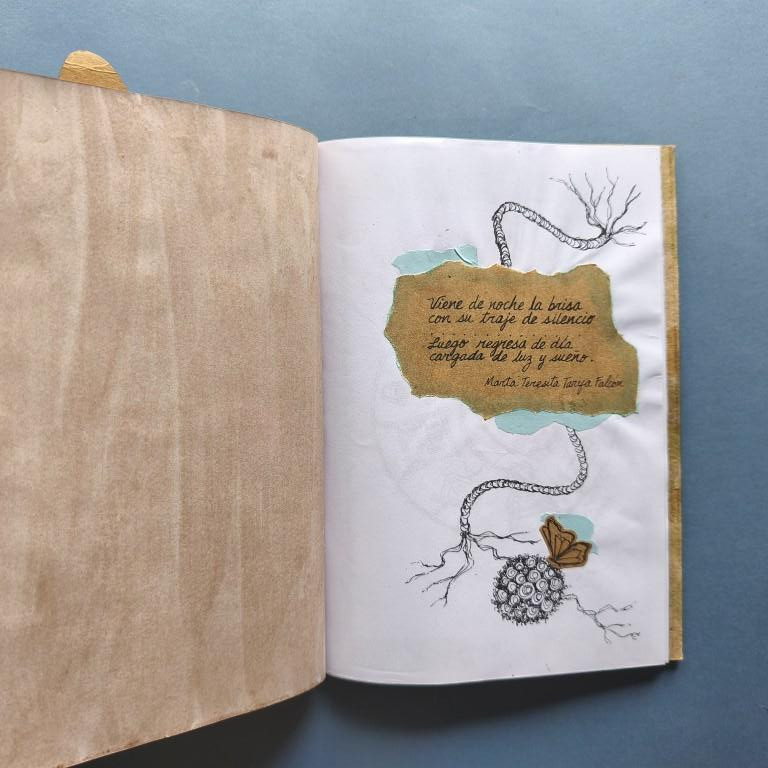 Viene de noche la brisa
con su traje de silencio
. . . . . . . . . . . . . . . . . . . .
Luego regresa de día
cargada de luz y sueño.
Marta Teresita Tarya Falcon